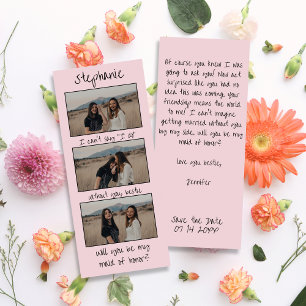 Stephanie
I can't say "I do"
without you, bestie
will you be my
maid of honor?
Of course you knew I was
going to ask you! Now act
surprised like you had no
idea this was coming, your
friendship means the world
to me! I can't imagine
getting married without you
by my side, will you be my
maid of honor?
love you bestie,
Jennifer
Save the Date
07 14 20XX